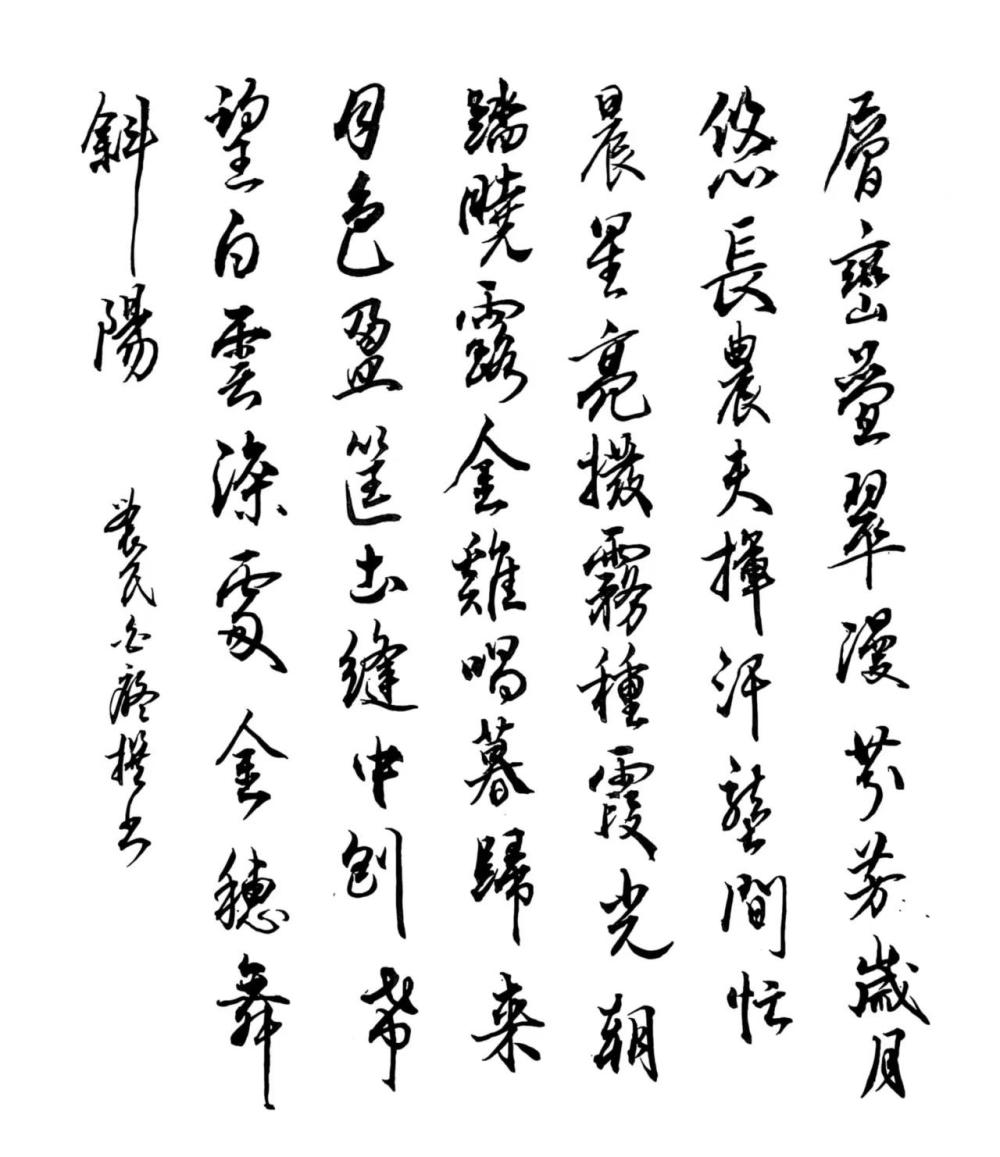 層巒疊翠漫芬芳歲月
悠長農夫揮汗壟間忙
晨星亮撥霧種霞光朝
踏曉露金雞唱暮歸來
月色盈筐土縫中刨希
望白雲深處金穗舞
斜陽
農民 撰書